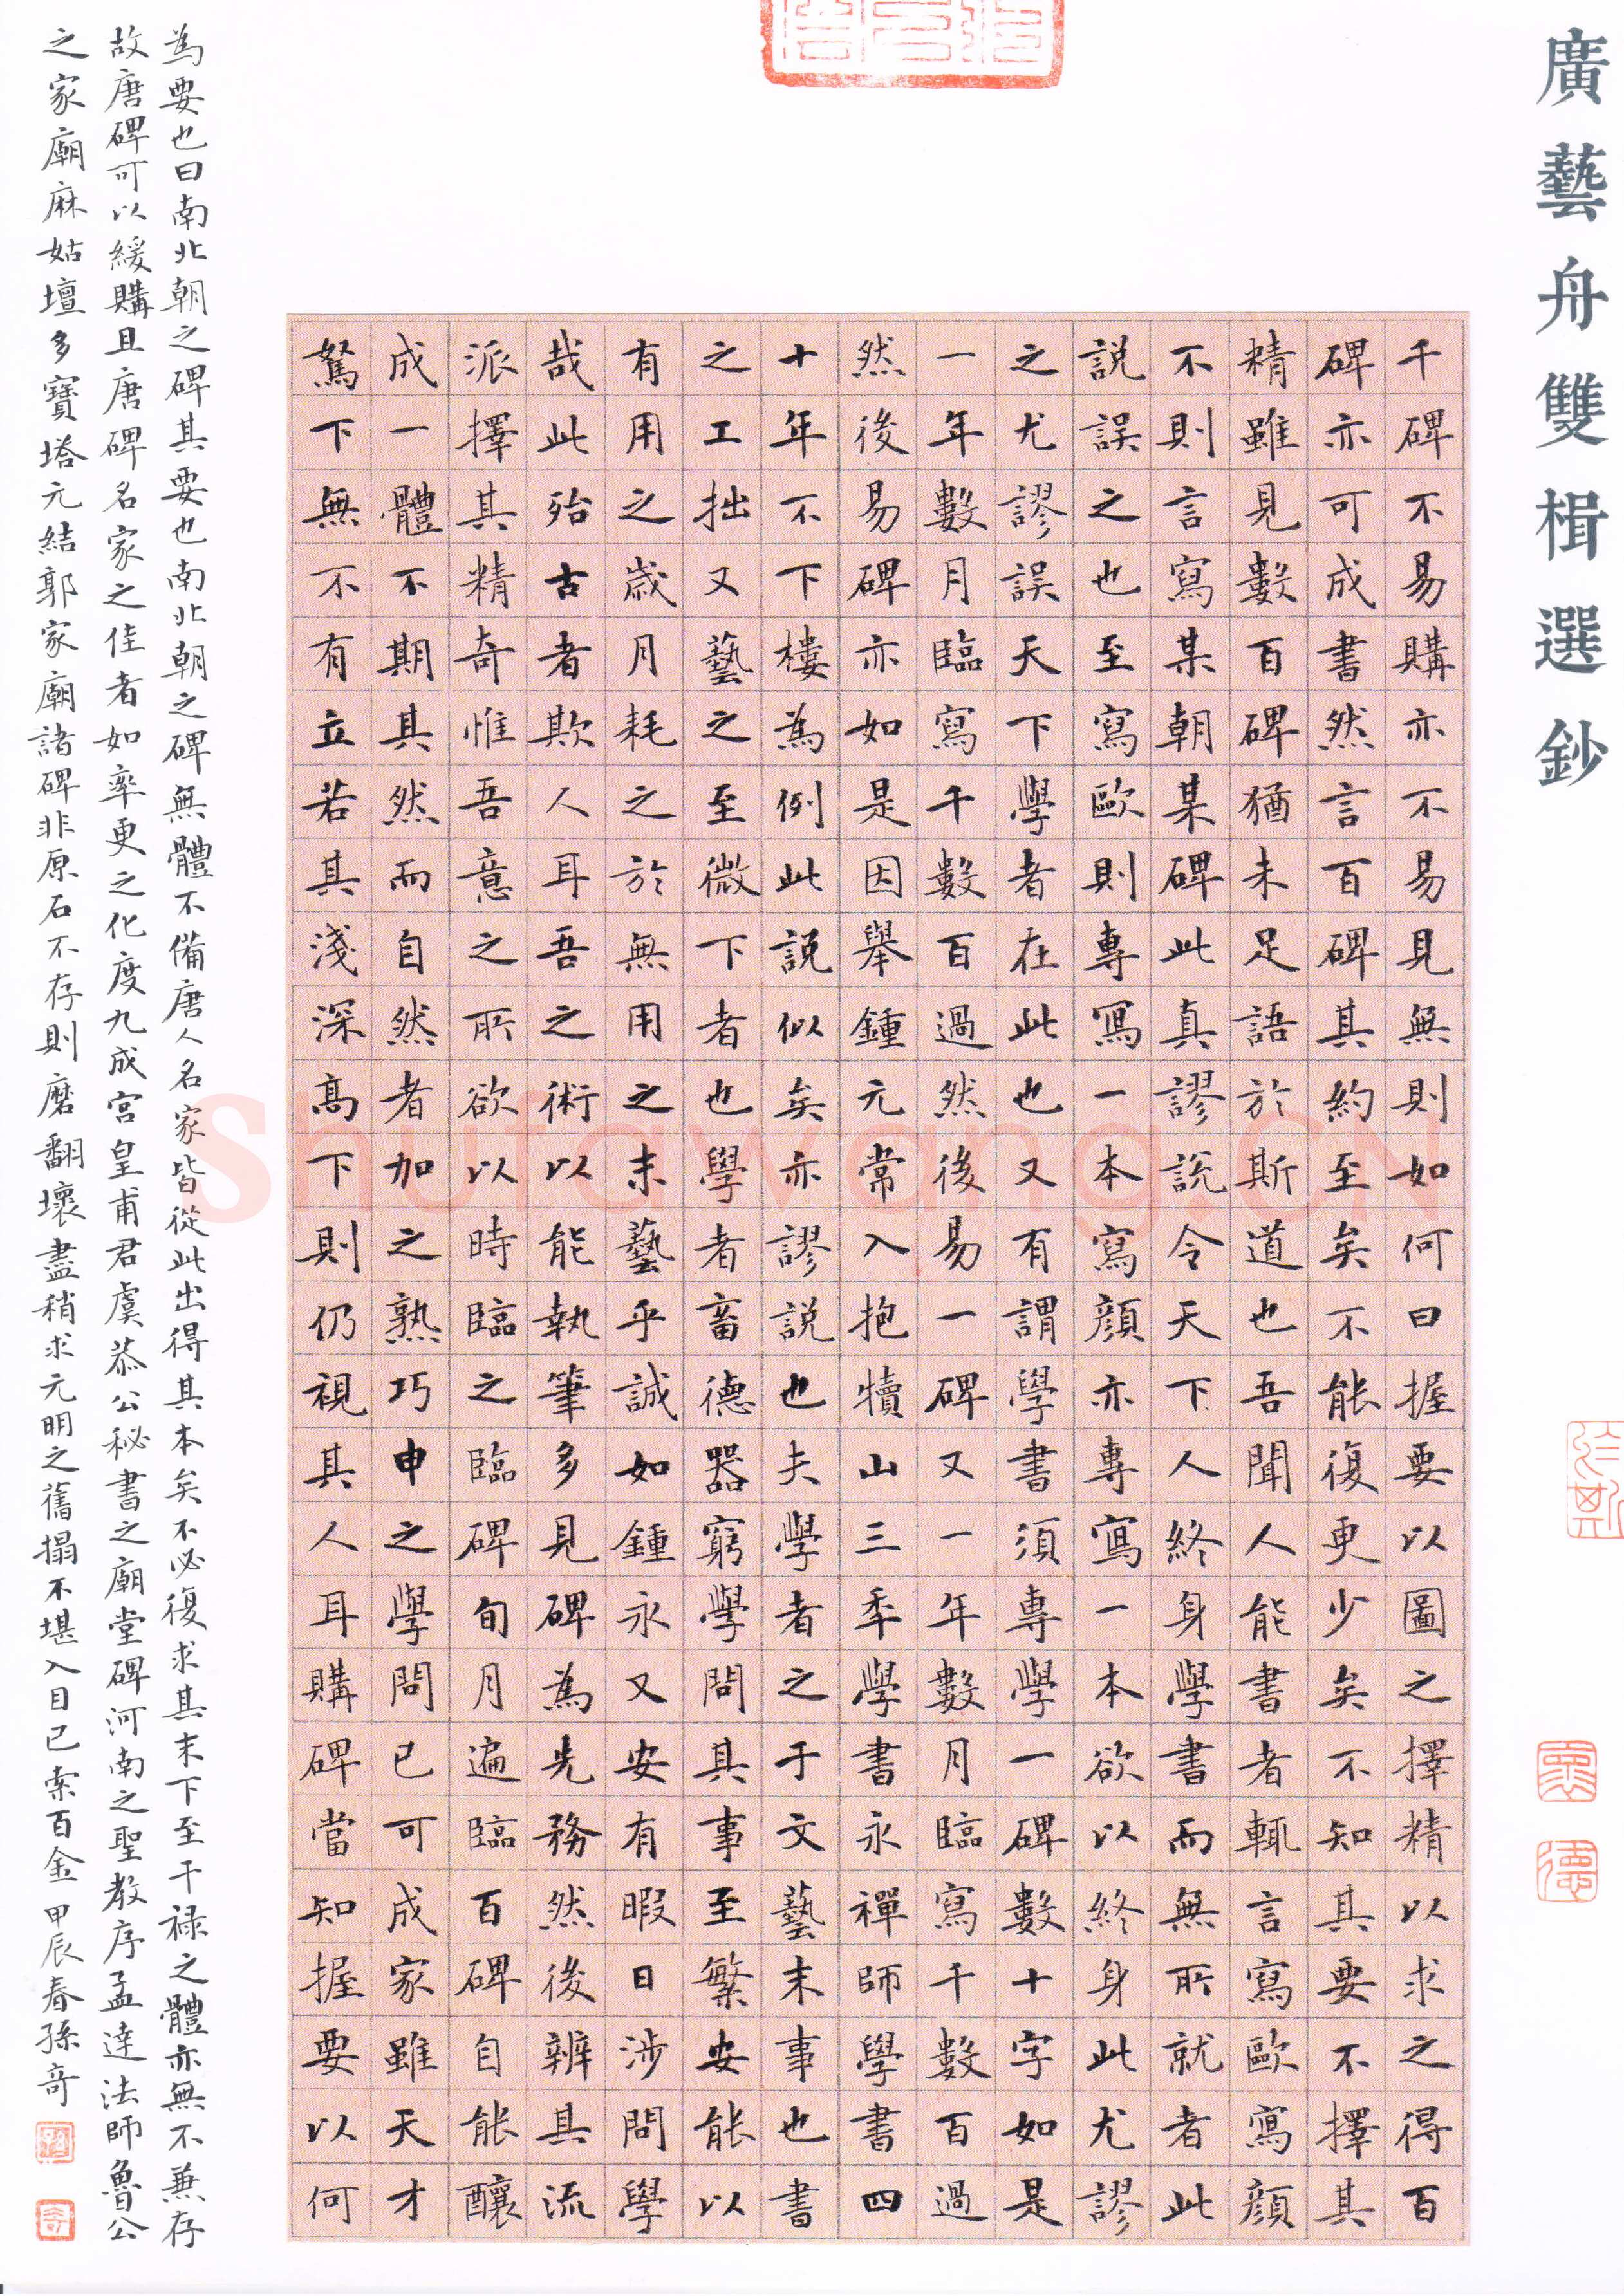 廣藝舟雙楫選鈔
千碑不易購亦不易見無則如何曰握要以圖之擇精以求之得百
碑亦可成書然言百碑其約至矣不能復更少矣不知其要不擇其
精雖見數百碑猶未足語於斯道也吾聞人能書者輒言寫歐寫顏
不則言寫某朝某碑此真謬說令天下人終身學書而無所就者此
說誤之也至寫歐則專寫一本寫顏亦專寫一本欲以終身此尤謬
之尤謬誤天下學者在此也又有謂學書須專學一碑數十字如是
一年數月臨寫千數百過然後易一碑又一年數月臨寫千數百過
然後易碑亦如是因舉鍾元常入抱犢山三季學書永禪師學書四
十年不下樓為例此說似矣亦謬說也夫學者之于文藝末事也書
之工拙又藝之至微下者也學者畜德器窮學問其事至繁安能以
有用之歲月耗之於無用之末藝乎誠如鍾永又安有暇日涉問學
哉此殆古者欺人耳吾之術以能執筆多見碑為先務然後辨其流
派擇其精奇惟吾意之所欲以時臨之臨碑旬月遍臨百碑自能釀
成一體不期其然而自然者加之熟巧申之學問已可成家雖天才
駑下無不有立若其淺深高下則仍視其人耳購碑當知握要以何
為要也曰南北朝之碑其要也南北朝之碑無體不備唐人名家皆從此出得其本矣不必復求其末下至干祿之體亦無不兼存
故唐碑可以緩購且唐碑名家之佳者如率更之化度九成宮皇甫君虞恭公秘書之廟堂碑河南之聖教序孟達法師魯公
之家廟麻姑壇多寶塔元結郭家廟諸碑非原石不存則磨翻壞盡稍求元明之舊搨不堪入目已索百金 甲辰春孫奇
Shutawang.CN